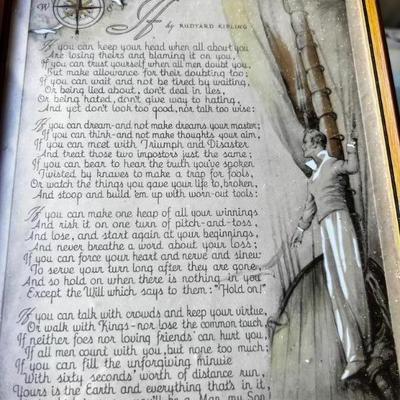 W S
If by RUDYARD KIPLING
If you can keep your head when all about you
Are losing theirs and blaming it on you,
If you can trust yourself when all men doubt you,
But make allowance for their doubting too;
If you can wait and not be tired by waiting,
Or being lied about, don't deal in lies,
Or being hated, don't give way to hating,
And yet don't look too good, nor talk too wise:
If you can dream-and not make dreams your master;
If you can think-and not make thoughts your aim,
If you can meet with Triumph and Disaster
And treat those two impostors just the same;
If you can bear to hear the truth you've spoken,
Twisted by knaves to make a trap for fools,
Or watch the things you gave your life to, broken,
And stoop and build 'em up with worn-out tools:
If you can make one heap of all your winnings
And risk it on one turn of pitch-and-toss,
And lose, and start again at your beginnings,
And never breathe a word about your loss;
If you can force your heart and nerve and sinew
To serve your turn long after they are gone,
And so hold on when there is nothing in you
Except the Will which says to them: "Hold on!"
If you can talk with crowds and keep your virtue,
Or walk with Kings-nor lose the common touch,
If neither foes nor loving friends can hurt you,
If all men count with you, but none too much;
If you can fill the unforgiving minute
With sixty seconds' worth of distance run,
Yours is the Earth and everything that's in it,
you'll be a Man, my Son